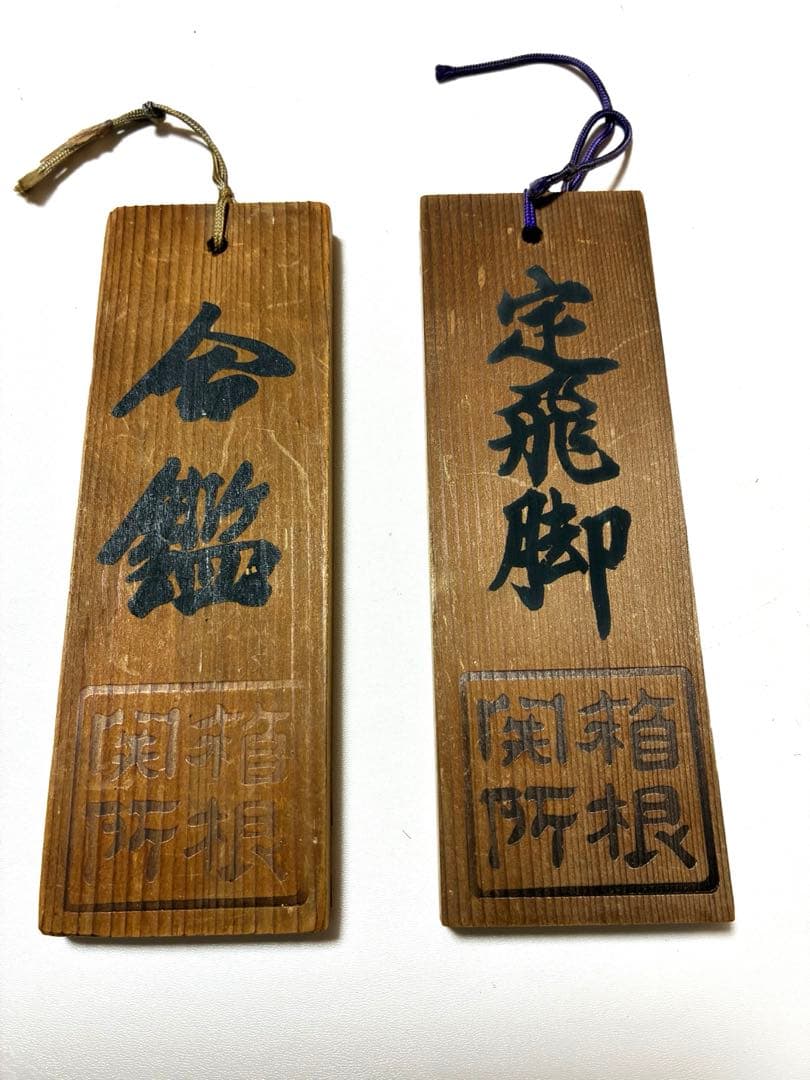 合鑑
箱根
関所
定飛脚
箱根
関所